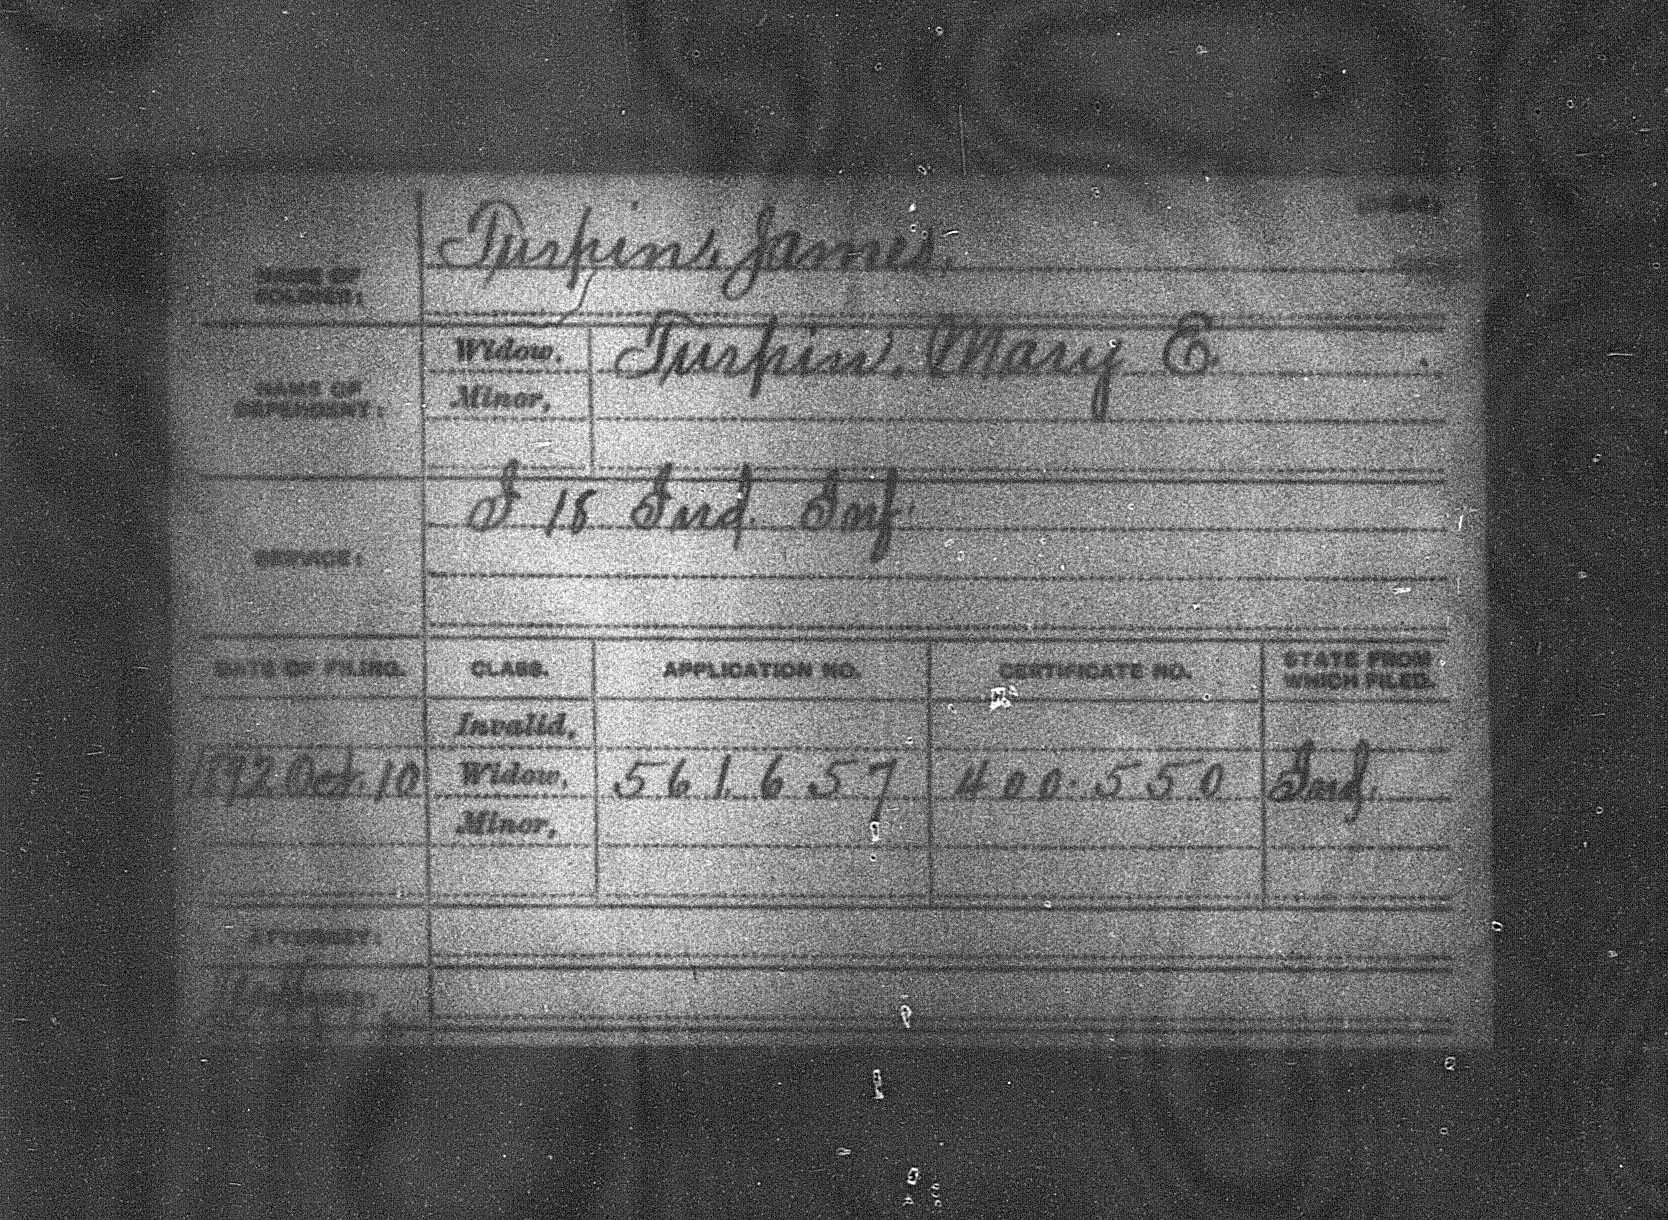 NAME OF SOLDIER: Turpin, James,
NAME OF DEPENDENT:
Widow, Turpin, Mary E.
Minor,
SERVICE: I 18 Ind. Inf.
DATE OF FILING. CLASS. APPLICATION NO. CERTIFICATE NO. STATE FROM WHICH FILED.
Invalid,
1892 Oct. 10 Widow, 561.657 400.550 Ind.
Minor,
ATTORNEY: